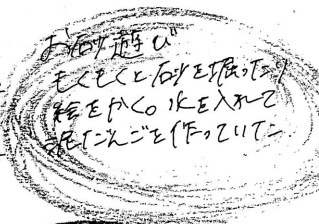 お砂遊び
もくもくと砂を掘ったり
絵をかく。水を入れて
泥だんごを作っていた